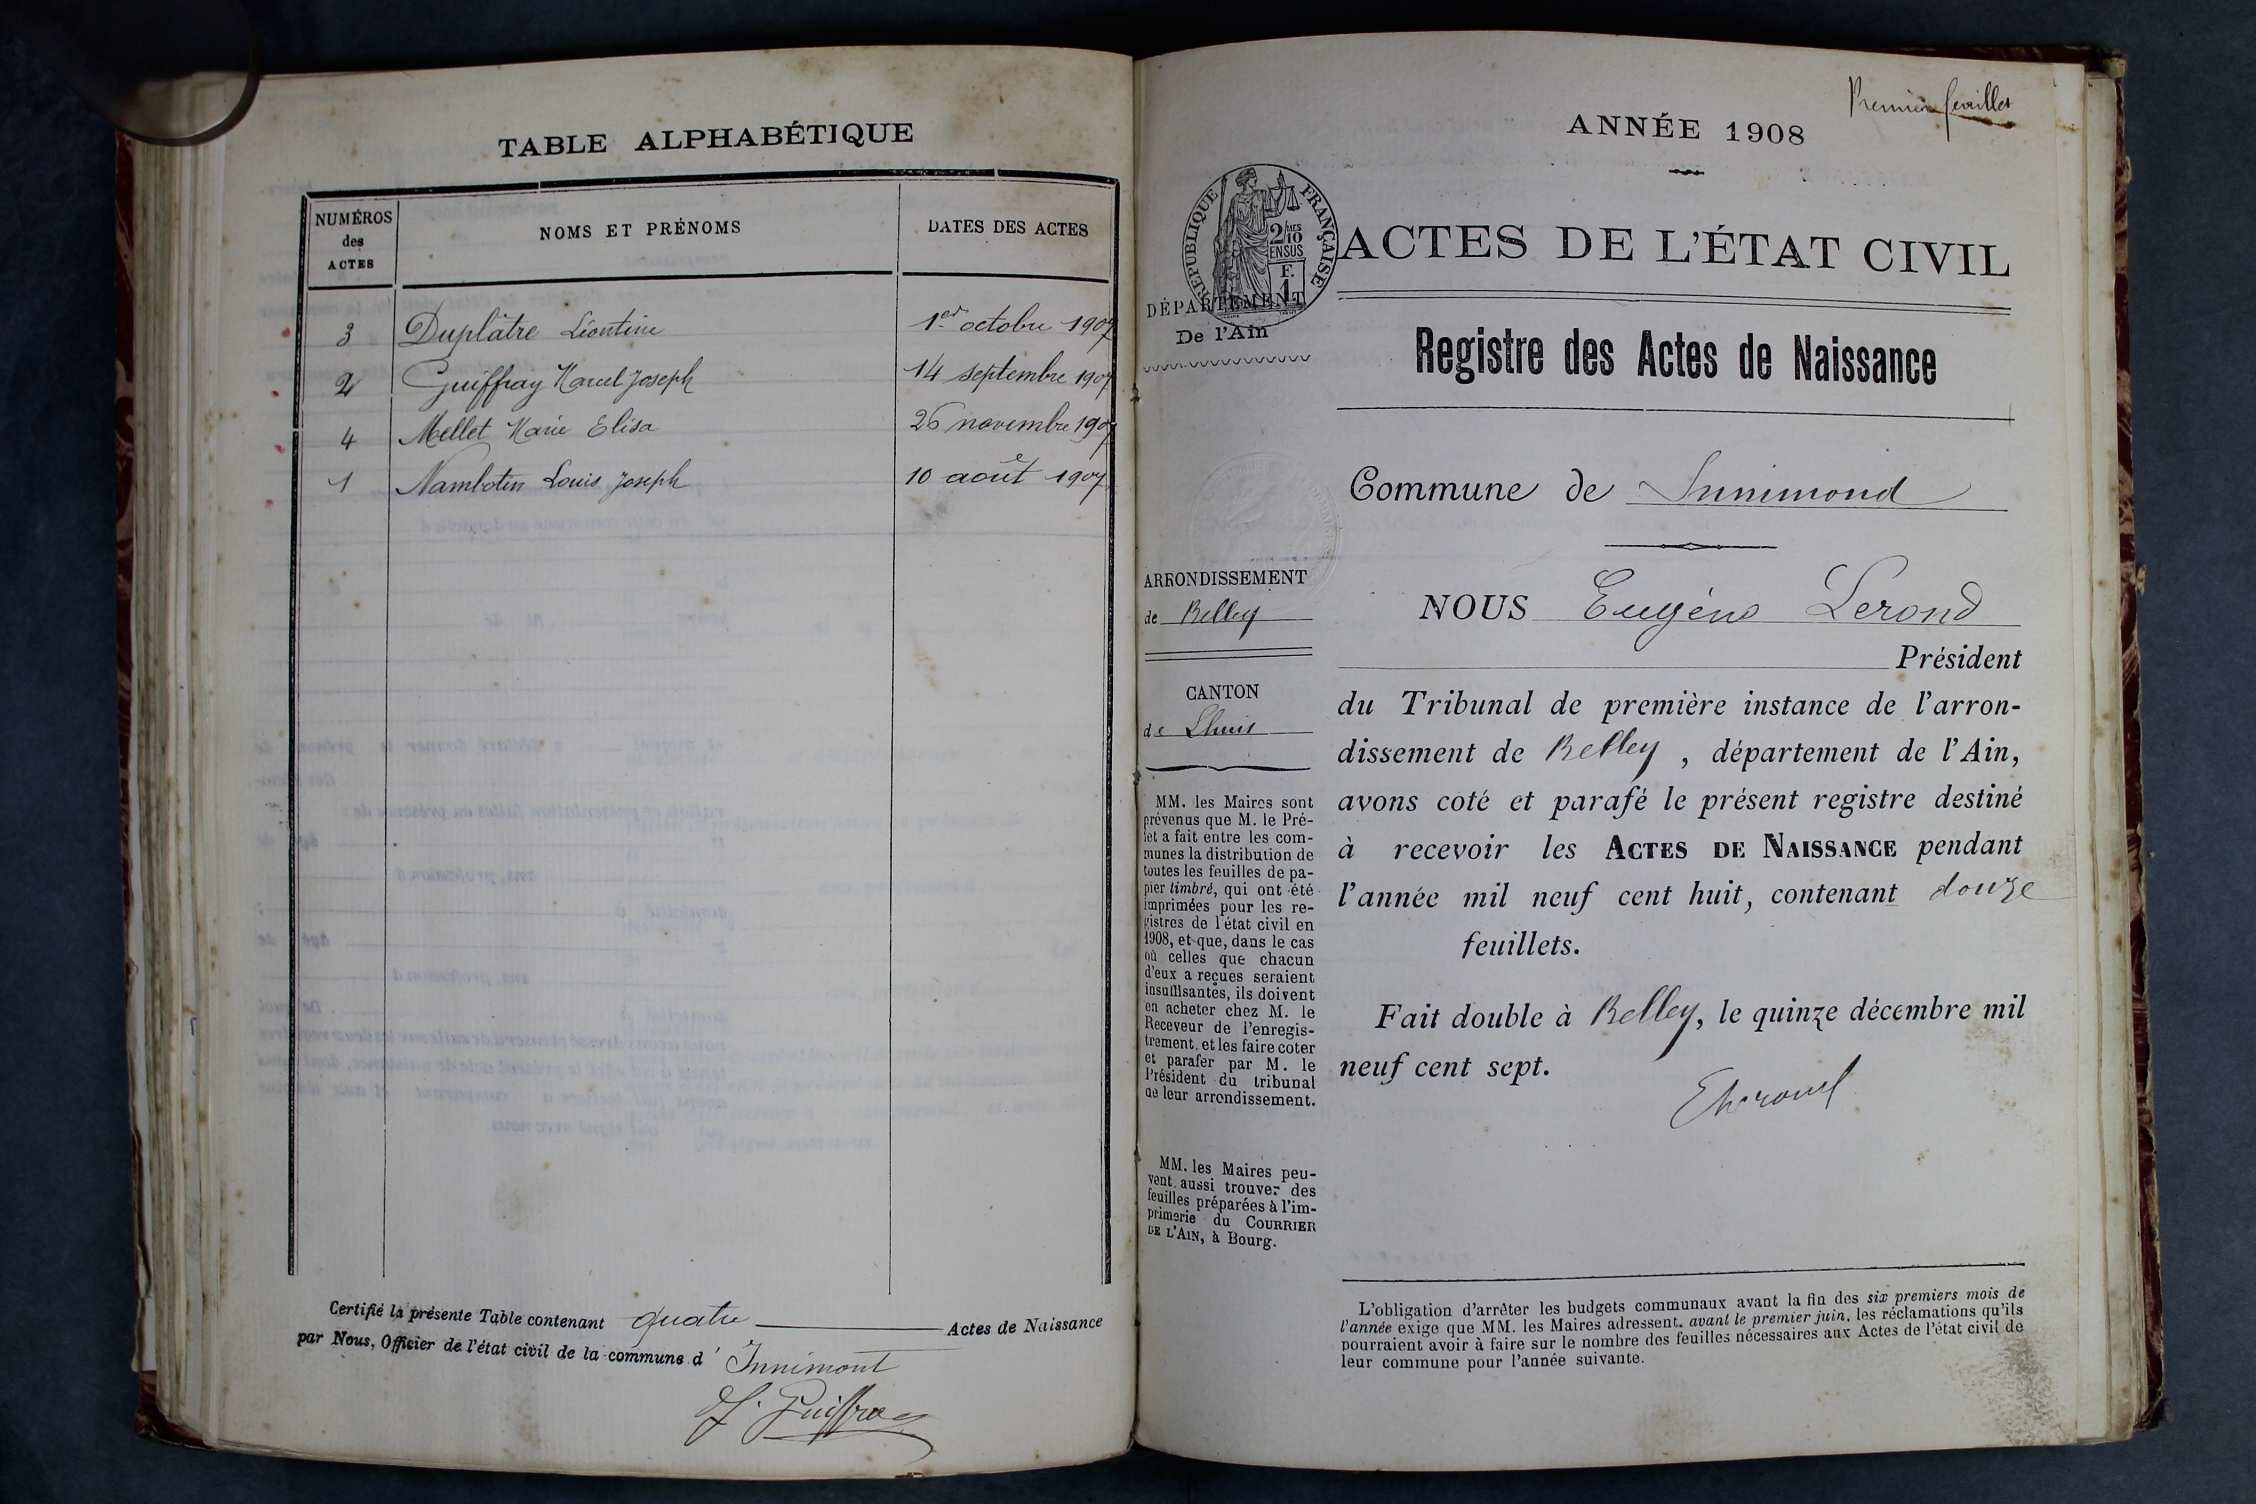 TABLE ALPHABÉTIQUE
NUMÉROS
des
ACTES
NOMS ET PRÉNOMS
DATES DES ACTES
3 Duplâtre Léontine 1er octobre 1907
2 Guiffray Marcel Joseph 14 septembre 1907
4 Mellet Marie Elisa 26 novembre 1907
1 Nambotin Louis Joseph 10 août 1907
Certifié la présente Table contenant quatre Actes de Naissance
par Nous, Officier de l'état civil de la commune d' Innimont
J. Guiffray
Premier feuillet
ANNÉE 1908
RÉPUBLIQUE FRANÇAISE
2/10
EN SUS
F.
1
ACTES DE L'ÉTAT CIVIL
DÉPARTEMENT
De l'Ain
Registre des Actes de Naissance
Commune de Innimond
ARRONDISSEMENT
de Belley
CANTON
de Lhuis
MM. les Maires sont
prévenus que M. le Pré-
fet a fait entre les com-
munes la distribution de
toutes les feuilles de pa-
pier timbré, qui ont été
imprimées pour les re-
gistres de l'état civil en
1908, et que, dans le cas
où celles que chacun
d'eux a reçues seraient
insuffisantes, ils doivent
en acheter chez M. le
Receveur de l'enregis-
trement, et les faire coter
et parafer par M. le
Président du tribunal
de leur arrondissement.
MM. les Maires peu-
vent aussi trouver des
feuilles préparées à l'im-
primerie du COURRIER
DE L'AIN, à Bourg.
NOUS Eugène Lerond
Président
du Tribunal de première instance de l'arron-
dissement de Belley , département de l'Ain,
avons coté et parafé le présent registre destiné
à recevoir les ACTES DE NAISSANCE pendant
l'année mil neuf cent huit, contenant douze
feuillets.
Fait double à Belley, le quinze décembre mil
neuf cent sept.
L'obligation d'arrêter les budgets communaux avant la fin des six premiers mois de
l'année exige que MM. les Maires adressent, avant le premier juin, les réclamations qu'ils
pourraient avoir à faire sur le nombre des feuilles nécessaires aux Actes de l'état civil de
leur commune pour l'année suivante.